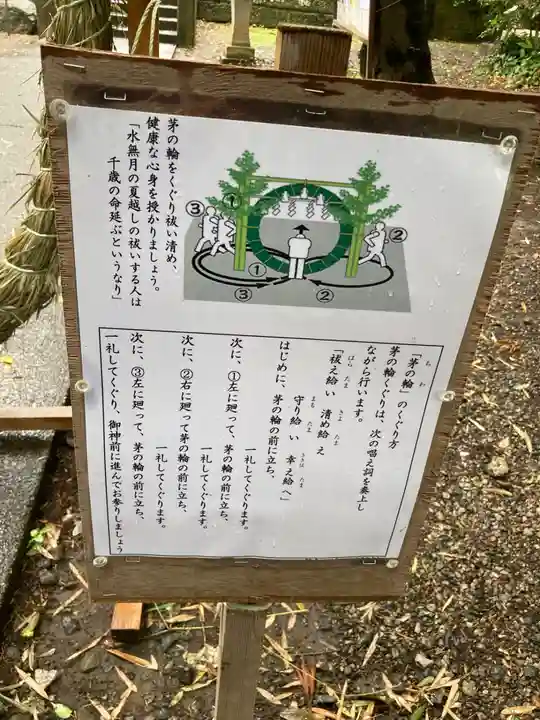 茅の輪をくぐり祓い清め、
健康な心身を授かりましょう。
「水無月の夏越しの祓いする人は
千歳の命延ぶというなり」
③
①
②
①
③
②
「茅の輪」のくぐり方
ち わ
茅の輪くぐりは、次の唱え詞を奏上し
ながら行います。
「祓え給い 清め給え
はら たま きよ たま
守り給い 幸え給へ」
まも たま さきは たま
はじめに、茅の輪の前に立ち、
一礼してくぐります。
次に、①左に廻って、茅の輪の前に立ち、
一礼してくぐります。
次に、②右に廻って茅の輪の前に立ち、
一礼してくぐります。
次に、③左に廻って、茅の輪の前に立ち、
一礼してくぐり、御神前に進んでお参りしましょう